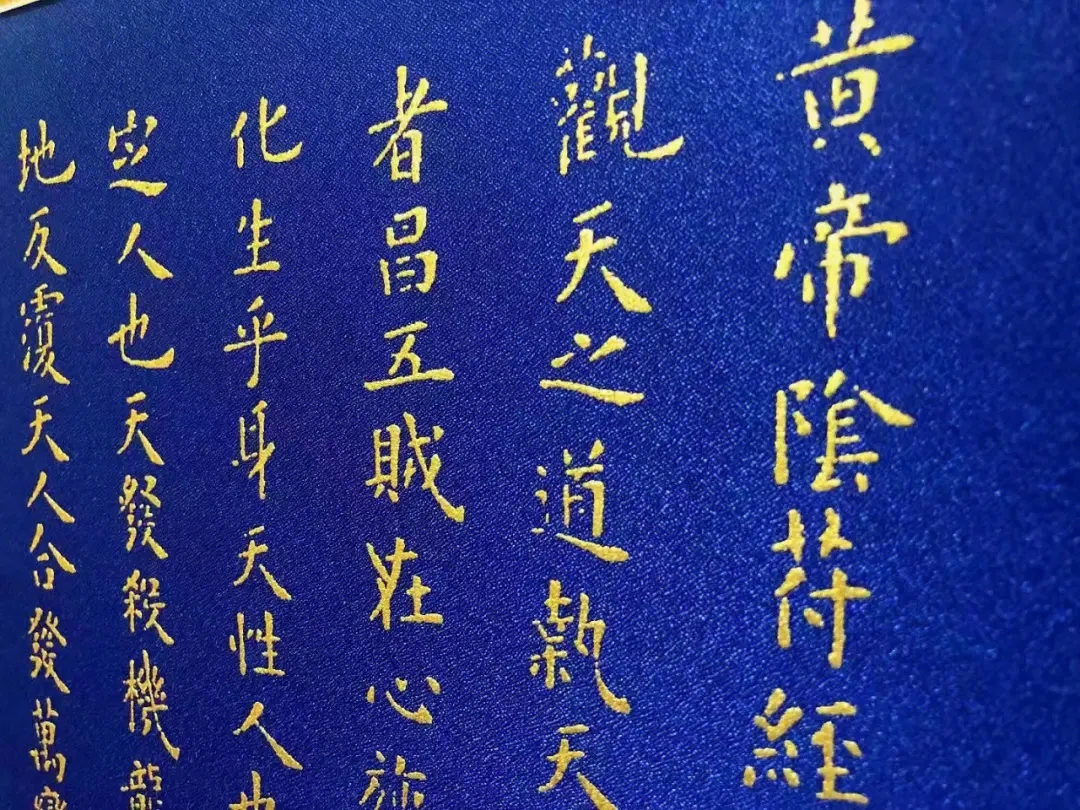 黄帝隂苻經
觀天之道執天
者昌五賊在心施
化生乎身天性人也
定人也天發殺機龍
地反覆天人合發萬